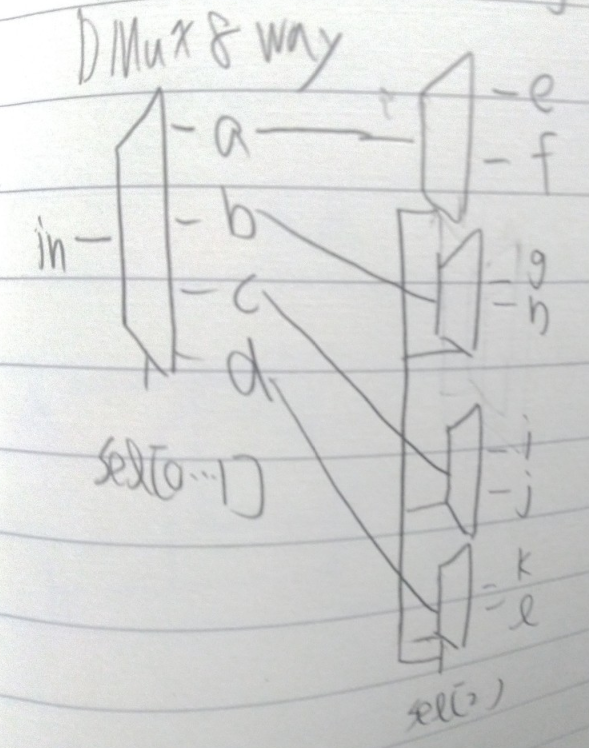 DMux 8 way
in
a
b
c
d
sel[0...1]
e
f
g
h
i
j
k
l
sel(2)